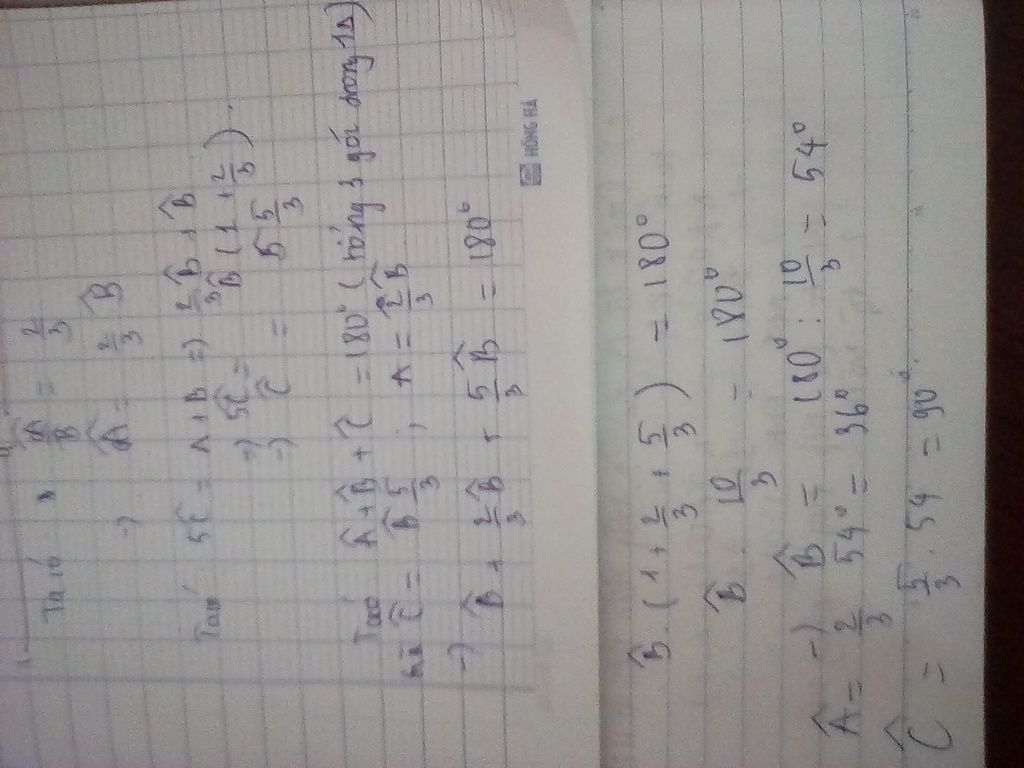 Ta có Â/B̂ = 2/3
-) Â = 2/3 B̂
Ta có 5Ĉ = A + B =) 2/3 B̂ + B̂
-) 5Ĉ = B̂ (1 + 2/3).
-) Ĉ = B̂ 5/3
Ta có Â + B̂ + Ĉ = 180° (tổng 3 góc trong 1Δ)
mà Ĉ = B̂ 5/3 , A = 2B̂/3
-) B̂ + 2/3 B̂ + 5/3 B̂ = 180°
HỒNG HÀ
B̂. (1 + 2/3 + 5/3) = 180°
B̂ . 10/3 = 180°
-) B̂ = 180° : 10/3 = 54°
Â = 2/3 54° = 36°
Ĉ = 5/3 . 54 = 90°.